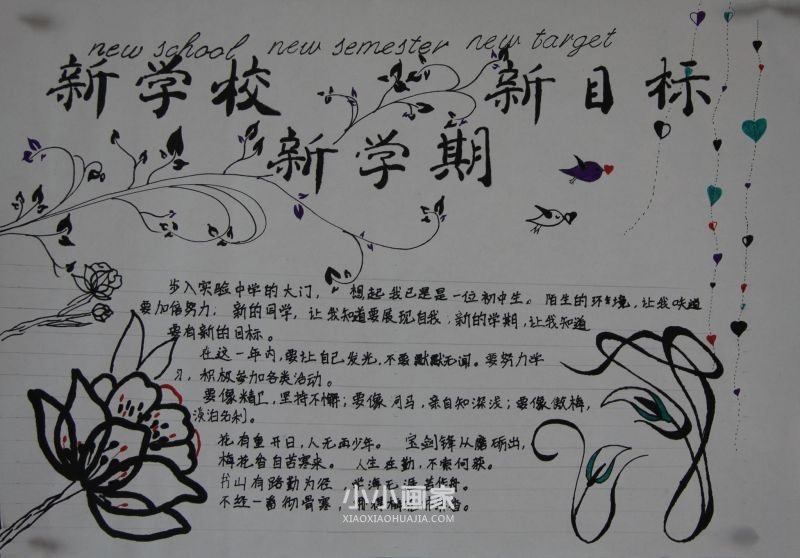 new school new semester new target
新学校 新目标
新学期
步入实验中学的大门，想起我已是是一位初中生。陌生的环境，让我知道
要加倍努力；新的同学，让我知道要展现自我；新的学期，让我知道
要有新的目标。
在这一年内，要让自己发光，不要默默无闻。要努力学
习，积极参加各类活动。
要像精卫，坚持不懈；要像河马，亲自知深浅；要像傲梅，
淡泊名利。
花有重开日，人无再少年。 宝剑锋从磨砺出，
梅花香自苦寒来。 人生在勤，不索何获。
书山有路勤为径，学海无涯苦作舟。
不经一番彻骨寒，
小小画家
XIAOXIAOHUAJIA.COM